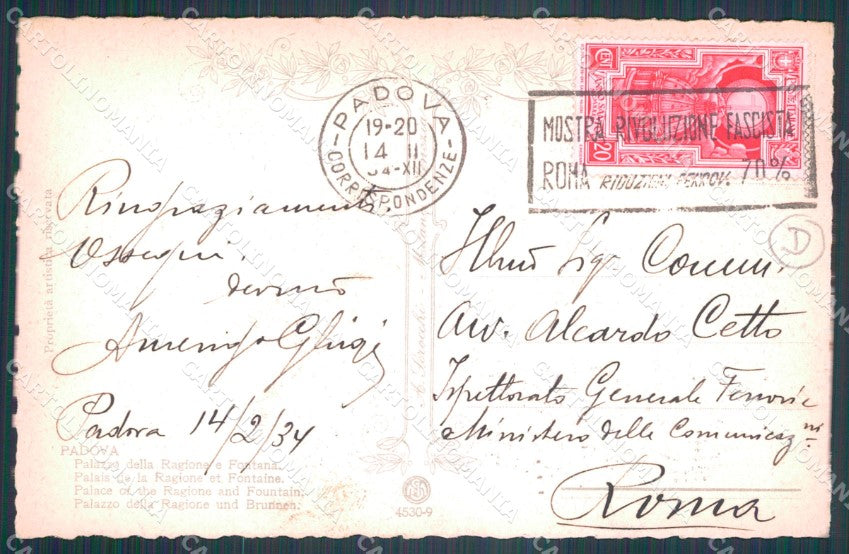 PADOVA
CORRISPONDENZE
19-20
14 II
34-XII
MOSTRA RIVOLUZIONE FASCISTA
ROMA RIDUZIONI FERROV. 70%
20
CENT
D
Ringraziamenti
Ossequi
devmo
Amerigo Ghigi
Padova 14/2/34
Illmo Sig. Comm.
Avv. Alcardo Cetto
Ispettorato Generale Ferrovie
Ministero delle Comunicazni
Roma
Proprietà artistica riservata
PADOVA
Palazzo della Ragione e Fontana.
Palais de la Ragione et Fontaine.
Palace of the Ragione and Fountain.
Palazzo della Ragione und Brunnen.
4530-9
CARTOLINOMANIA